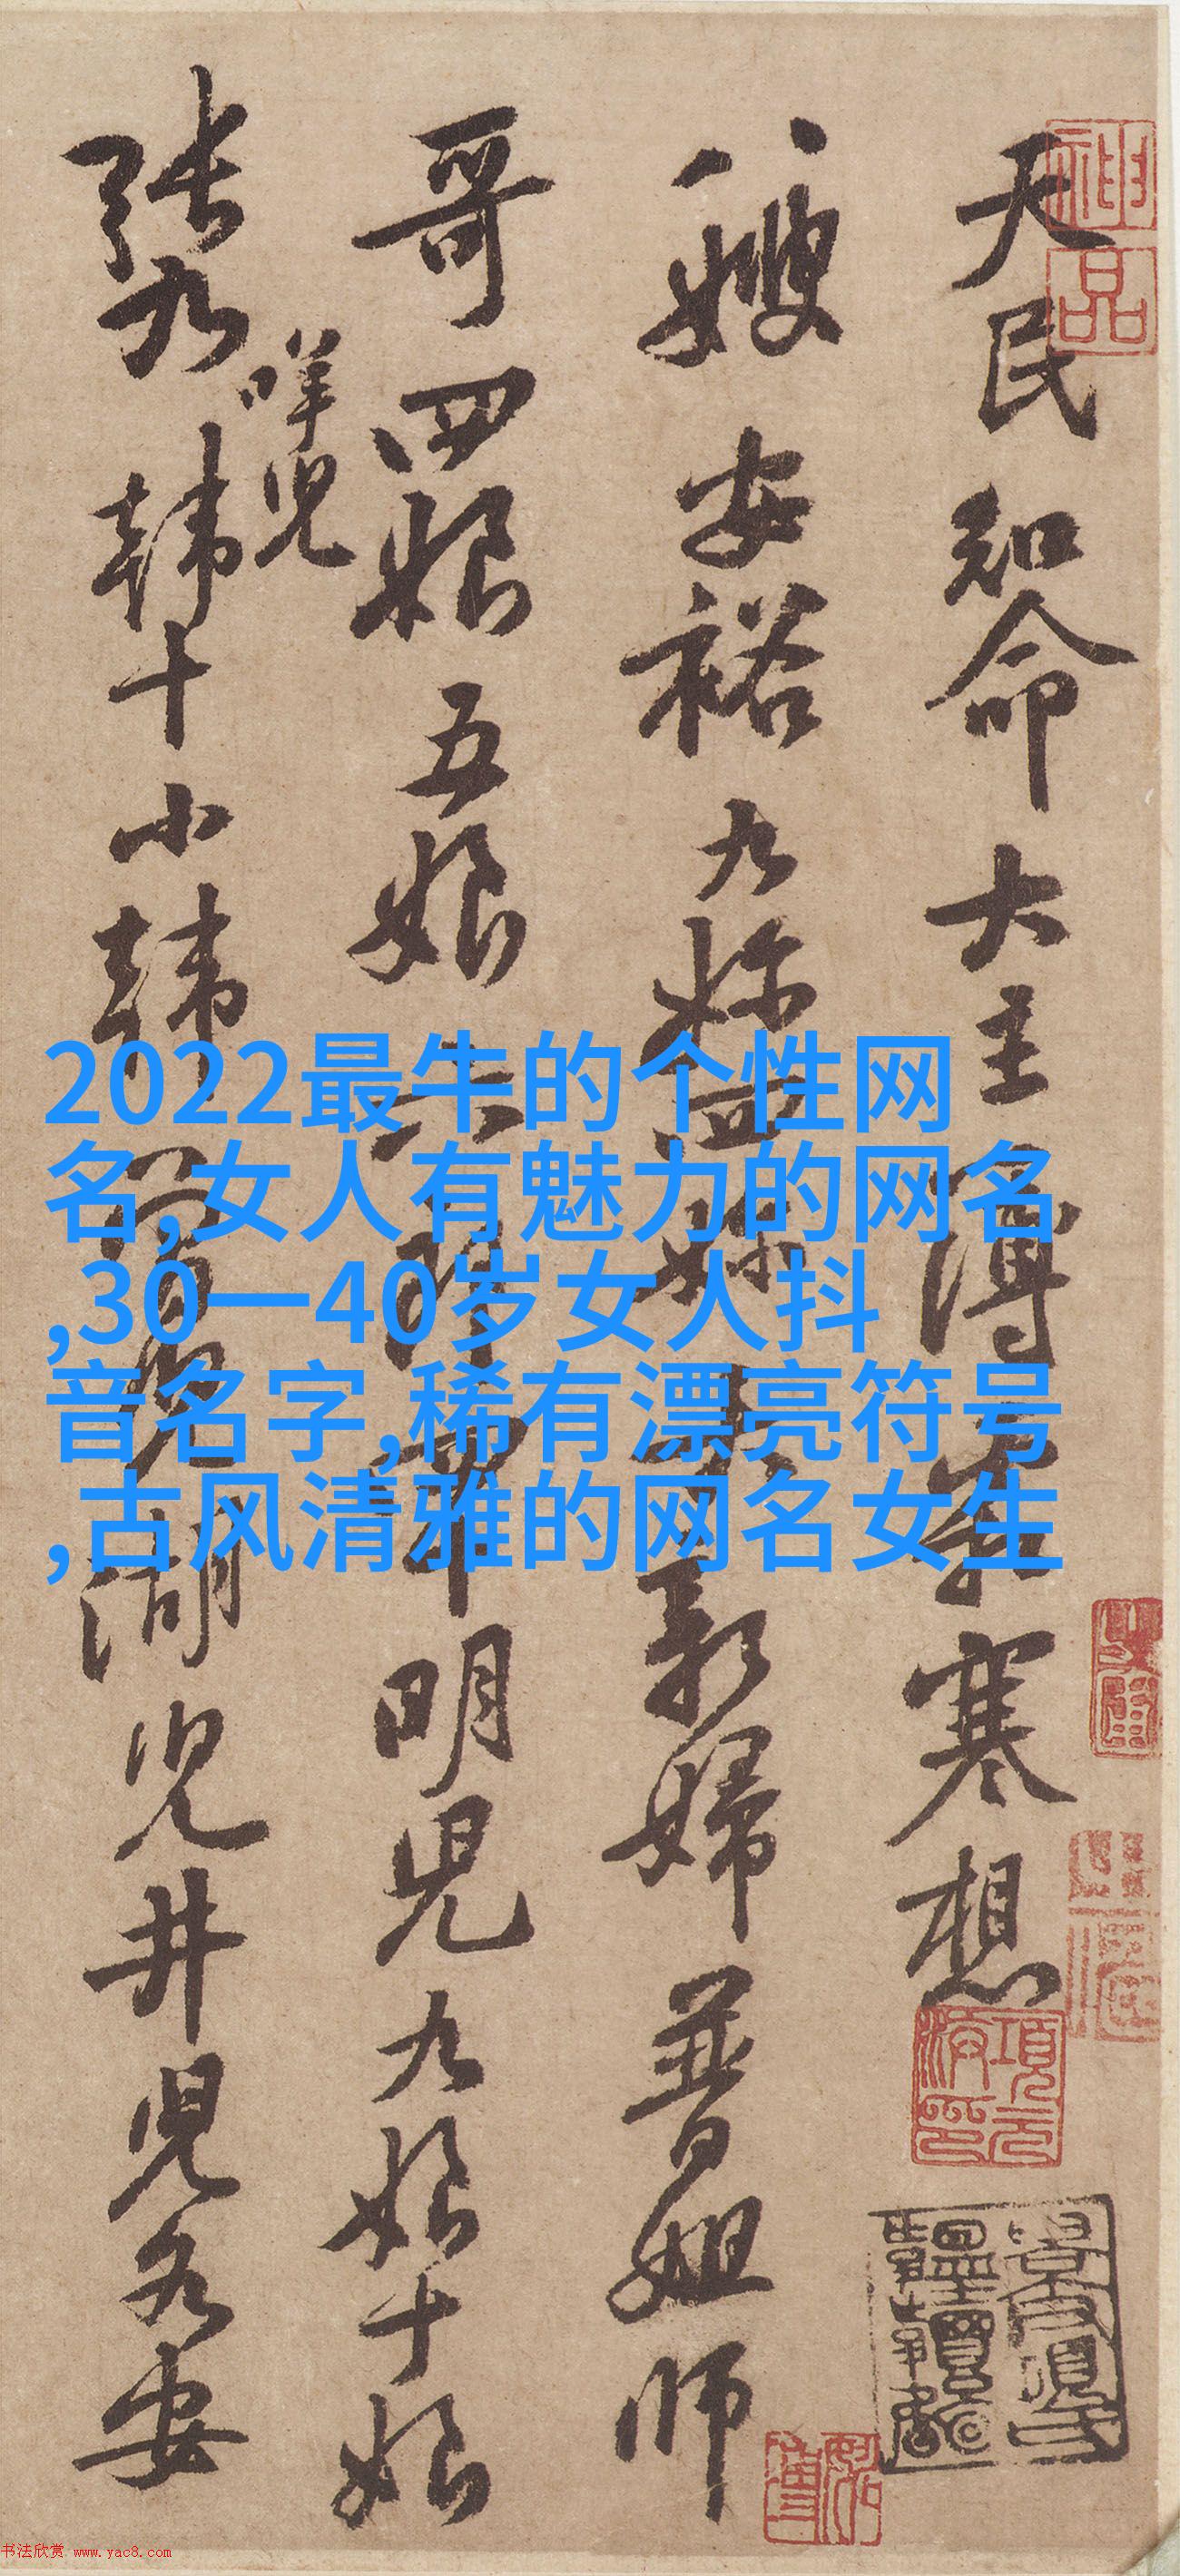 天民知命大主簿
寒想
八嫂安裕九
新婦普姐师
哥四娘五娘
明兒九娘十娘
张九咩兒韩十小韩
湖兒井兒各安
2022最牛的个性网
名,女人有魅力的网名
,30—40岁女人抖
音名字,稀有漂亮符号
,古风清雅的网名女生
神品
項元
书法欣赏 www.yac8.com